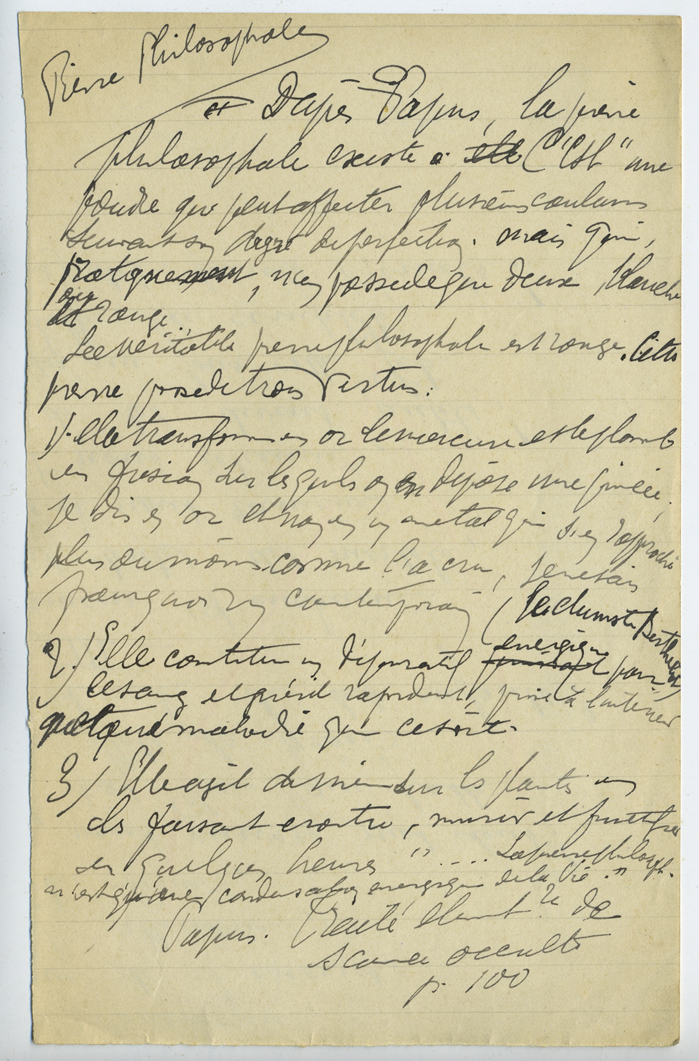 Pierre Philosophale
D'après Papus, la pierre
philosophale existe. C'"Est" une
poudre qui peut affecter plusieurs couleurs
suivant son degré de perfection. mais qui,
pratiquement, n'en possède que deux, blanche
ou rouge...
La véritable pierre philosophale est rouge. Cette
pierre possède trois vertus:
1). Elle transforme en or le mercure et le plomb
en fusion sur lesquels on en dépose une pincée,
je dis en or et non en un métal qui s'en rapproche
plus ou moins comme l'a cru, je ne sais
pourquoi un contemporain (le chimiste Berthelot
2) Elle constitue un dépuratif énergique pour
le sang et guérit rapidement, prise à l'intérieur
quelque maladie que ce soit.
3) Elle agit de même sur les plantes en
les faisant croître, mûrir et fructifier
en quelques heures" .... La pierre philosoph.
n'est qu'une condensation énergique de la vie."
Papus. Traité élément.re de
Science occulte
p. 100